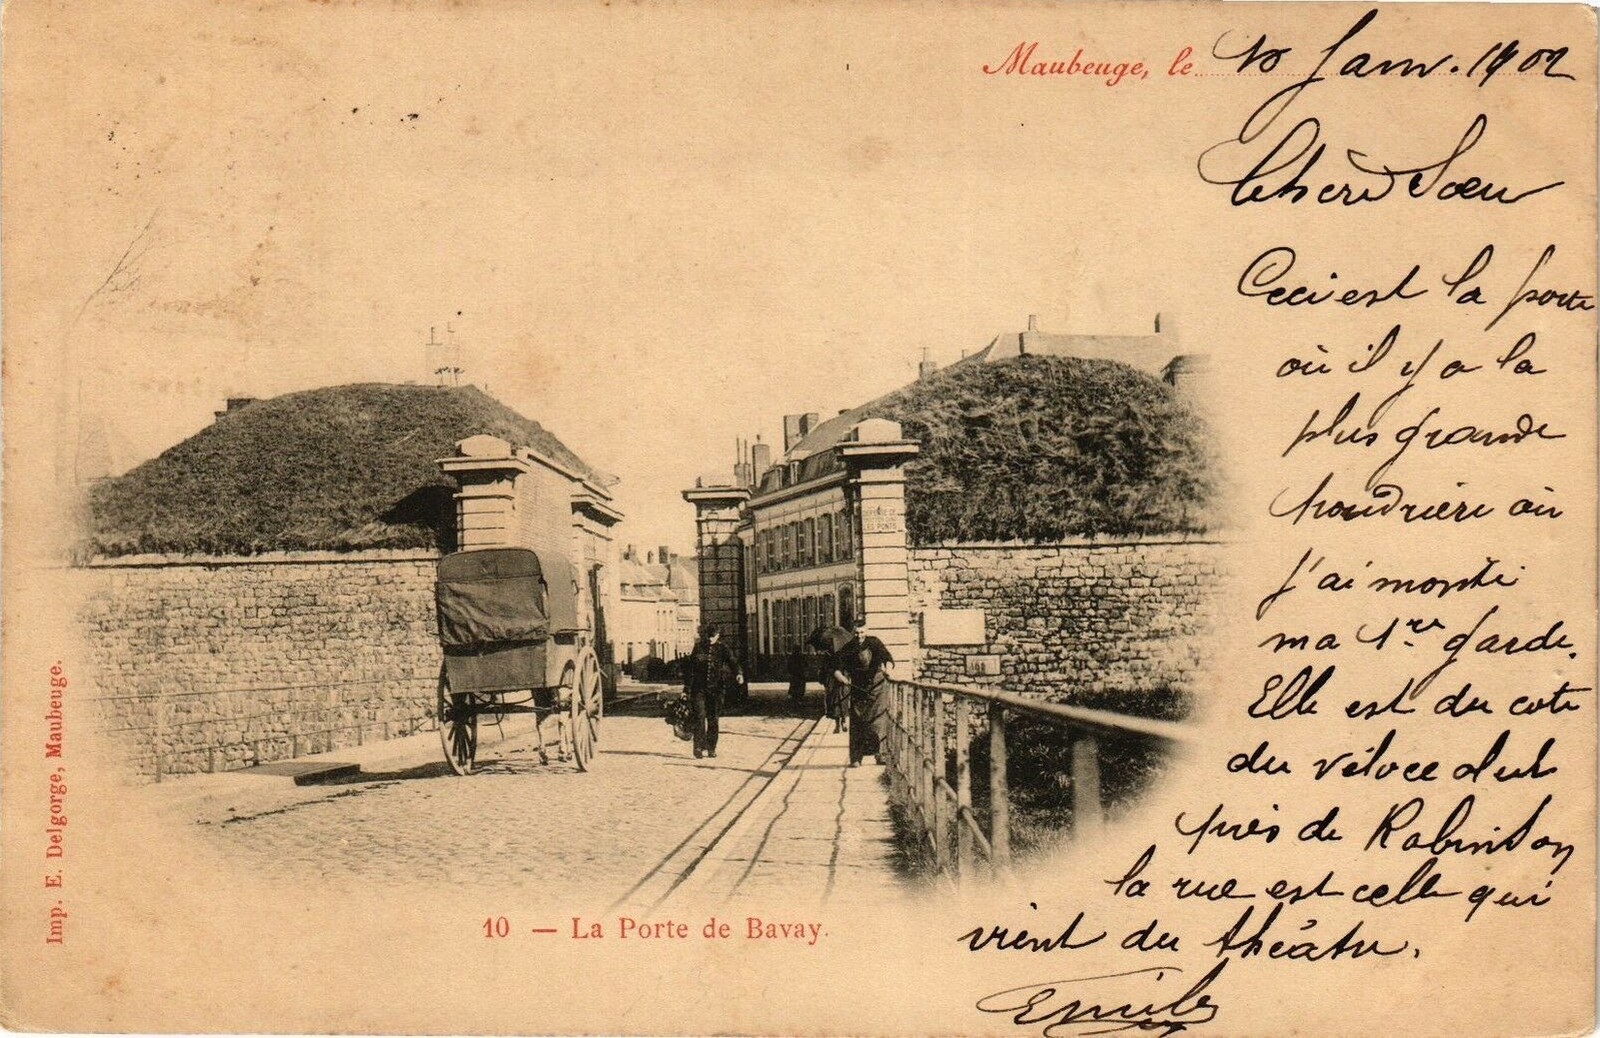 Maubeuge, le 10 Janv. 1902
Chère Sœur
Ceci est la porte
où il y a la
plus grande
poudrière où
j'ai monté
ma 1re garde.
Elle est du coté
du véloce club
près de Robinson
la rue est celle qui
vient du théâtre.
Emile
10 — La Porte de Bavay.
Imp. E. Delgorge, Maubeuge.